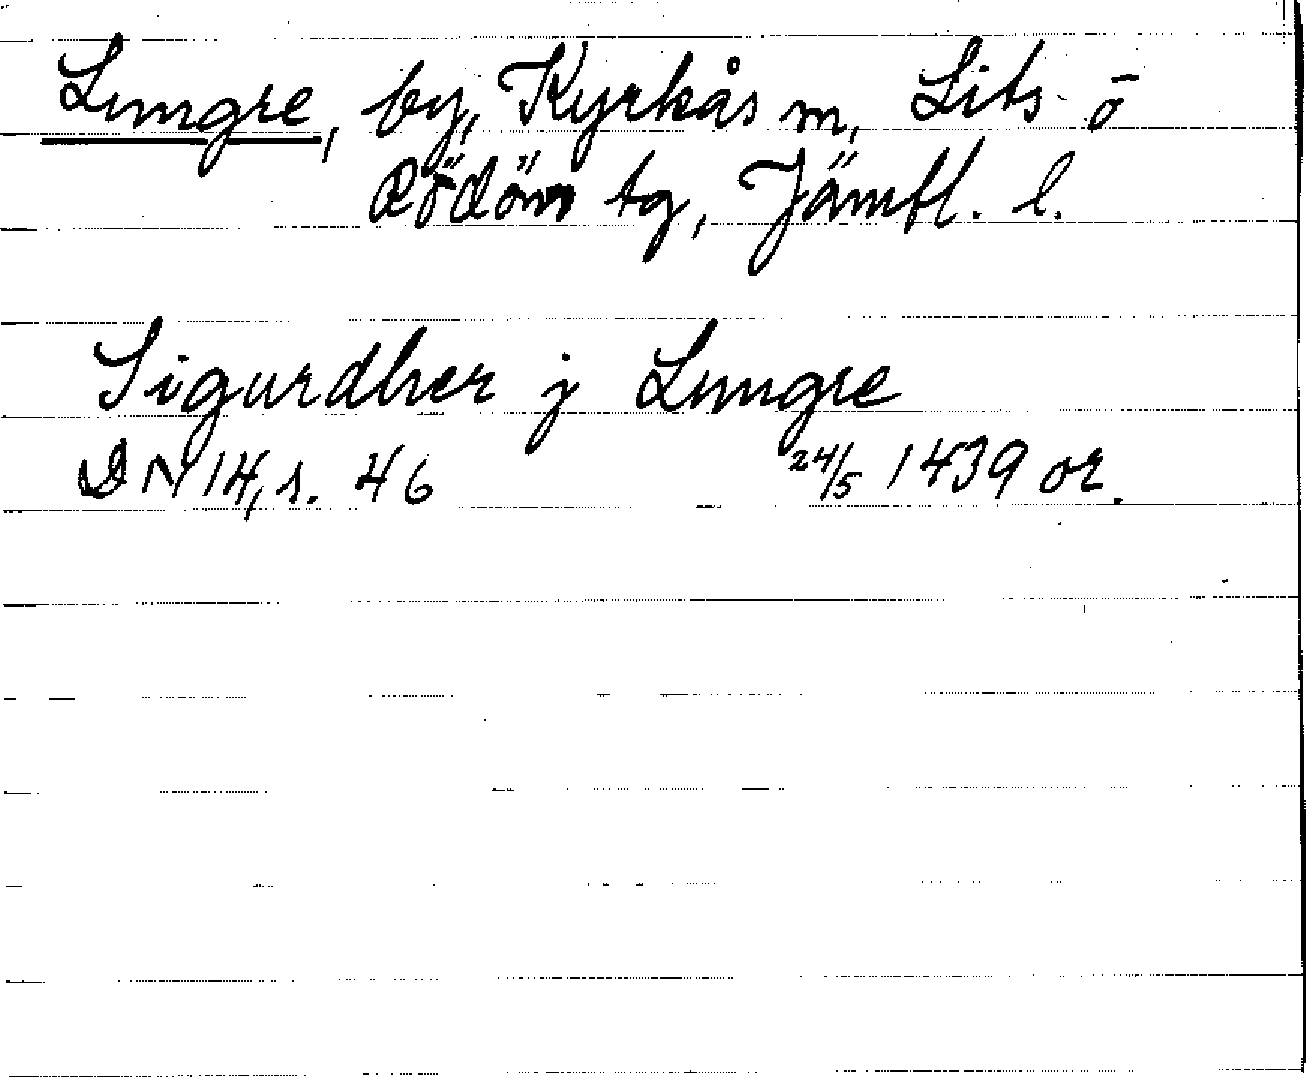 Lungre, by, Kyrkås sn, Lits o
Rödöns tg, Jämtl. l.
Sigurdher j Lungre
DN 14, s. 46 24/5 1439 or.